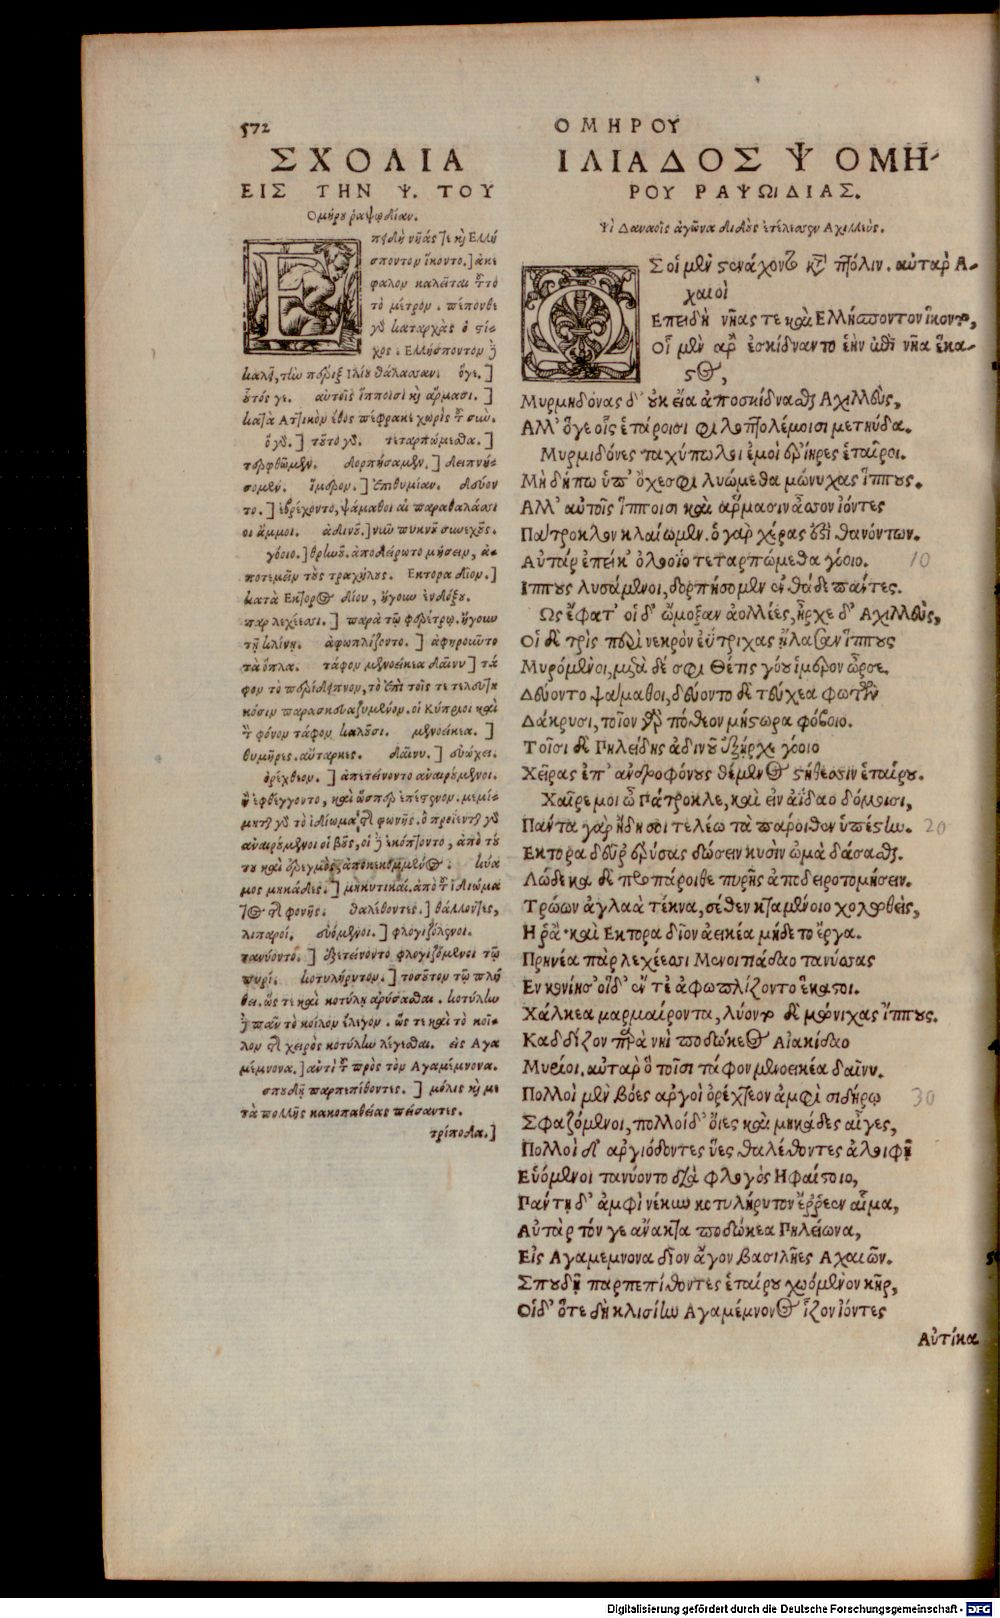 572
ΟΜΗΡΟΥ
ΣΧΟΛΙΑ
ΕΙΣ ΤΗΝ Ψ. ΤΟΥ
Ομήρου ῥαψῳδίαν.
πειδὴ νῆάς τε καὶ Ελλή
σποντον ἵκοντο.] ἀκέ
φαλον καλεῖται τὸ
τὸ μέτρον. πέπονθε
γὸ καταρχὰς ὁ στί-
χος. Ελλήσποντον
ὅγε.]
οὗτός γε. αὐτοῖς ἵπποισι καὶ ἅρμασι.]
κατὰ Αττικὸν ἔθος πέφρακε χωρὶς
τοῦτο γὸ. τεταρπώμεσθα.]
τερφθῶμεν. δορπήσαμεν.] δειπνή-
σομεν. ἵμερον.] ἐπιθυμίαν. δεύον
το.] ἐβρέχοντο, ψάμαθοι αἱ παραθαλάσσι
οι ἄμμοι. ἁδινοῦ.] πυκνοῦ συνεχοῦς.
γόοιο.] θρήνου. ἀποδειροτομήσειν, ἀ-
ποτεμεῖν τοὺς τραχήλους. Εκτορα δῖον.]
κατὰ Εκτορος δίου, ἤγουν ἐνδόξου.
παρ λεχέεσσι.] παρὰ τῷ φερέτρῳ. ἤγουν
τῇ κλίνῃ. ἀφωπλίζοντο.] ἀφῃροῦντο
τὰ ὅπλα. τάφον μενοεικέα δαίνυ] τά
φον τὸ περίδειπνον, τὸ ἐπὶ τοῖς τετελευτη
κόσιν παρασκευαζόμενον. οἱ Κύπριοι καὶ
τ φόνον τάφον καλοῦσι. μενοεικέα.]
θυμήρες. αὔταρκες. δαίνυ.] εὐώχει.
ὀρέχθεον.] ἀπετείνοντο ἀναιρούμενοι.
ἢ ἐφθέγγοντο, καὶ ὥσπερ ἐπέστενον. μεμί-
μηται γὸ τὸ ἰδίωμα τῆς φωνῆς.
ἀναιρούμενοι οἱ βόες, ἀπὸ τού
του καὶ ἐρεγμὸς
μηκάδες.] μηκυτικαὶ, ἀπὸ τ ἰδιώμα
τος τῆς φωνῆς. θαλέθοντες.] θάλλοντες,
λιπαροί. εὑόμενοι.] φλογιζόμενοι.
τανύοντο.] ἐξετείνοντο φλογιζόμενοι τῷ
πυρί. κοτυλήρυτον.] τοσοῦτον τῷ πλή
θει. ὥς τε καὶ κοτύλῃ ἀρύσασθαι. κοτύλην
πᾶν τὸ κοῖλον ἔλεγον. ὥς τε καὶ τὸ κοῖ-
λον τῆς χειρὸς κοτύλην λέγεσθαι. εἰς Αγα
μέμνονα.] ἀντὶ τ πρὸς τὸν Αγαμέμνονα.
σπουδῇ παρπεπιθόντες.] μόλις καὶ με
τὰ πολλῆς κακοπαθείας πείσαντες.
τρίποδα.]
ΙΛΙΑΔΟΣ Ψ ΟΜΗ-
ΡΟΥ ΡΑΨΩΙΔΙΑΣ.
Ψῖ Δαναοῖς ἀγῶνα διδοὺς ἐτέλεσσεν Αχιλλεύς.
Σ οἱ μὲν στενάχοντο κατὰ πτόλιν. αὐτὰρ Α-
χαιοὶ
Επειδὴ νῆας τε καὶ Ελλήσποντον ἵκοντο,
Οἱ μὲν ἂρ ἐσκίδναντο ἑὴν ἐπὶ νῆα ἕκα-
στος,
Μυρμηδόνας δ' οὐκ εἴα ἀποσκίδνασθαι Αχιλλεὺς,
Αλλ' ὅγε οἷς ἑτάροισι φιλοπτολέμοισι μετηύδα.
Μυρμιδόνες ταχύπωλοι ἐμοὶ ἐρίηρες ἑταῖροι.
Μὴ δήπω ὑπ' ὄχεσφι λυώμεθα μώνυχας ἵππους.
Αλλ' αὐτοῖς ἵπποισι καὶ ἅρμασιν ἆσσον ἰόντες
Πάτροκλον κλαίωμεν. ὃ γὰρ γέρας ἐστὶ θανόντων.
Αὐτάρ ἐπεί κ' ὀλοοῖο τεταρπώμεθα γόοιο. 10
Ιππους λυσάμενοι, δορπήσομεν ἐνθάδε πάντες.
Ως ἔφατ' οἱ δ' ᾤμοξαν ἀολλέες, ἦρχε δ' Αχιλλεὺς,
Οἱ δὲ τρὶς περὶ νεκρὸν ἐΰτριχας ἤλασαν ἵππους
Μυρόμενοι, μετὰ δέ σφι Θέτις γόου ἵμερον ὦρσε.
Δεύοντο ψάμαθοι, δεύοντο δὲ τεύχεα φωτῶν
Δάκρυσι, τοῖον γὰρ πόθεον μήστωρα φόβοιο.
Τοῖσι δὲ Πηλείδης ἁδινοῦ ἐξῆρχε γόοιο
Χεῖρας ἐπ' ἀνδροφόνους θέμενος στήθεσσιν ἑταίρου.
Χαῖρε μοι ὦ Πάτροκλε, καὶ εἰν ἀΐδαο δόμοισι,
Πάντα γὰρ ἤδη σοι τελέω τὰ πάροιθεν ὑπέστην. 20
Εκτορα δεῦρ ἐρύσας δώσειν κυσὶν ὠμὰ δάσασθαι.
Δώδεκα δὲ προπάροιθε πυρῆς ἀποδειροτομήσειν.
Τρώων ἀγλαὰ τέκνα, σέθεν κταμένοιο χολωθεὶς,
Η ῥὰ καὶ Εκτορα δῖον ἀεικέα μήδετο ἔργα.
Πρηνέα πὰρ λεχέεσσι Μενοιτιάδαο τανύσσας
Εν κονίης' οἱ δ' ἐντε ἀφωπλίζοντο ἕκαστοι.
Χάλκεα μαρμαίροντα, λύοντο δὲ μώνιχας ἵππους.
Καδδίζον παρὰ νηῒ ποδώκεος Αἰακίδαο
Μυρίοι. αὐτὰρ ὃ τοῖσι τάφον μενοεικέα δαῖνυ.
Πολλοὶ μὲν βόες ἀργοὶ ὀρέχθεον ἀμφὶ σιδήρῳ 30
Σφαζόμενοι, πολλοὶ δ' ὄϊες καὶ μηκάδες αἶγες,
Πολλοὶ δ' ἀργιόδοντες ὕες θαλέθοντες ἀλοιφῇ
Εὑόμενοι τανύοντο διὰ φλογὸς Ηφαίστοιο,
Πάντη δ' ἀμφὶ νέκυν κοτυλήρυτον ἔῤῥεεν αἷμα,
Αὐτὰρ τόν γε ἄνακτα ποδώκεα Πηλείωνα,
Εἰς Αγαμέμνονα δῖον ἄγον βασιλῆες Αχαιῶν.
Σπουδῇ παρπεπίθοντες ἑταίρου χωόμενον κῆρ,
Οἱ δ' ὅτε δὴ κλισίην Αγαμέμνονος ἷζον ἰόντες
Αὐτίκα
Digitalisierung gefördert durch die Deutsche Forschungsgemeinschaft - DFG